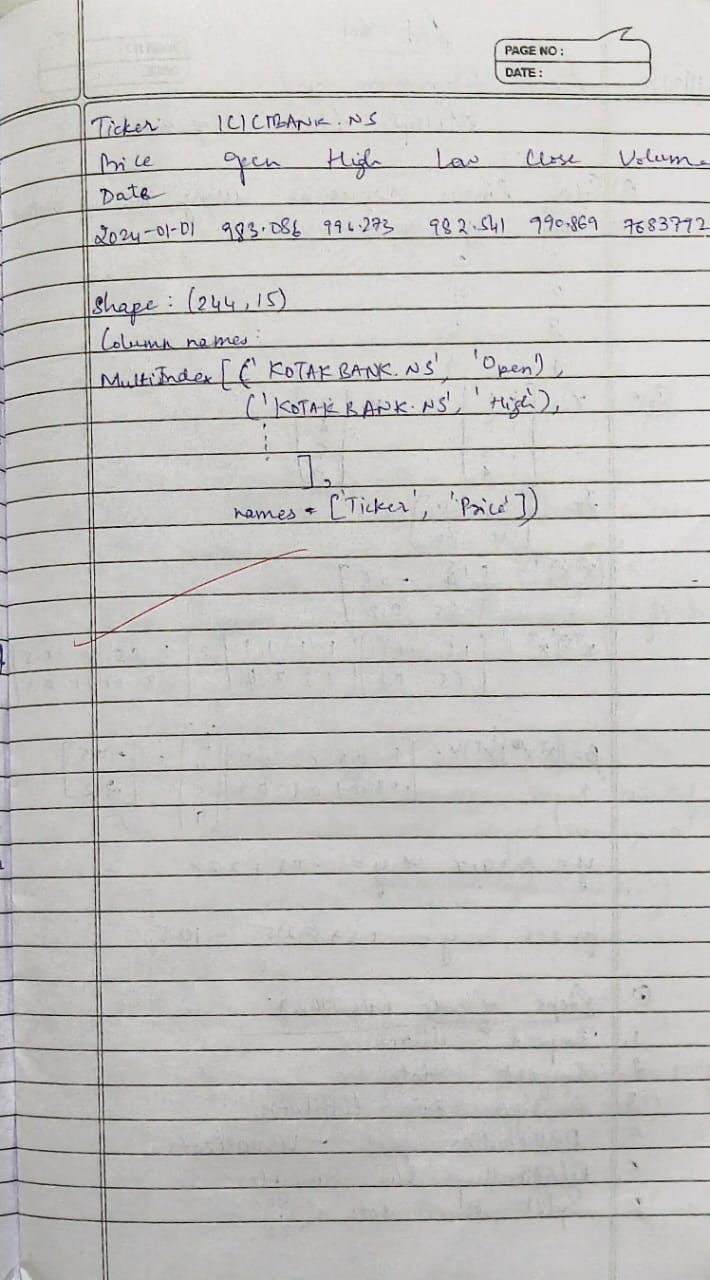 PAGE NO :
DATE :
Ticker ICICIBANK.NS
Price Open High Low Close Volume
Date
2024-01-01 983.086 996.273 982.541 990.869 7683792
Shape : (244, 15)
Column names :
MultiIndex [ (' KOTAKBANK.NS', 'Open'),
('KOTAKBANK.NS', 'High'),
],
names = ['Ticker', 'Price'])